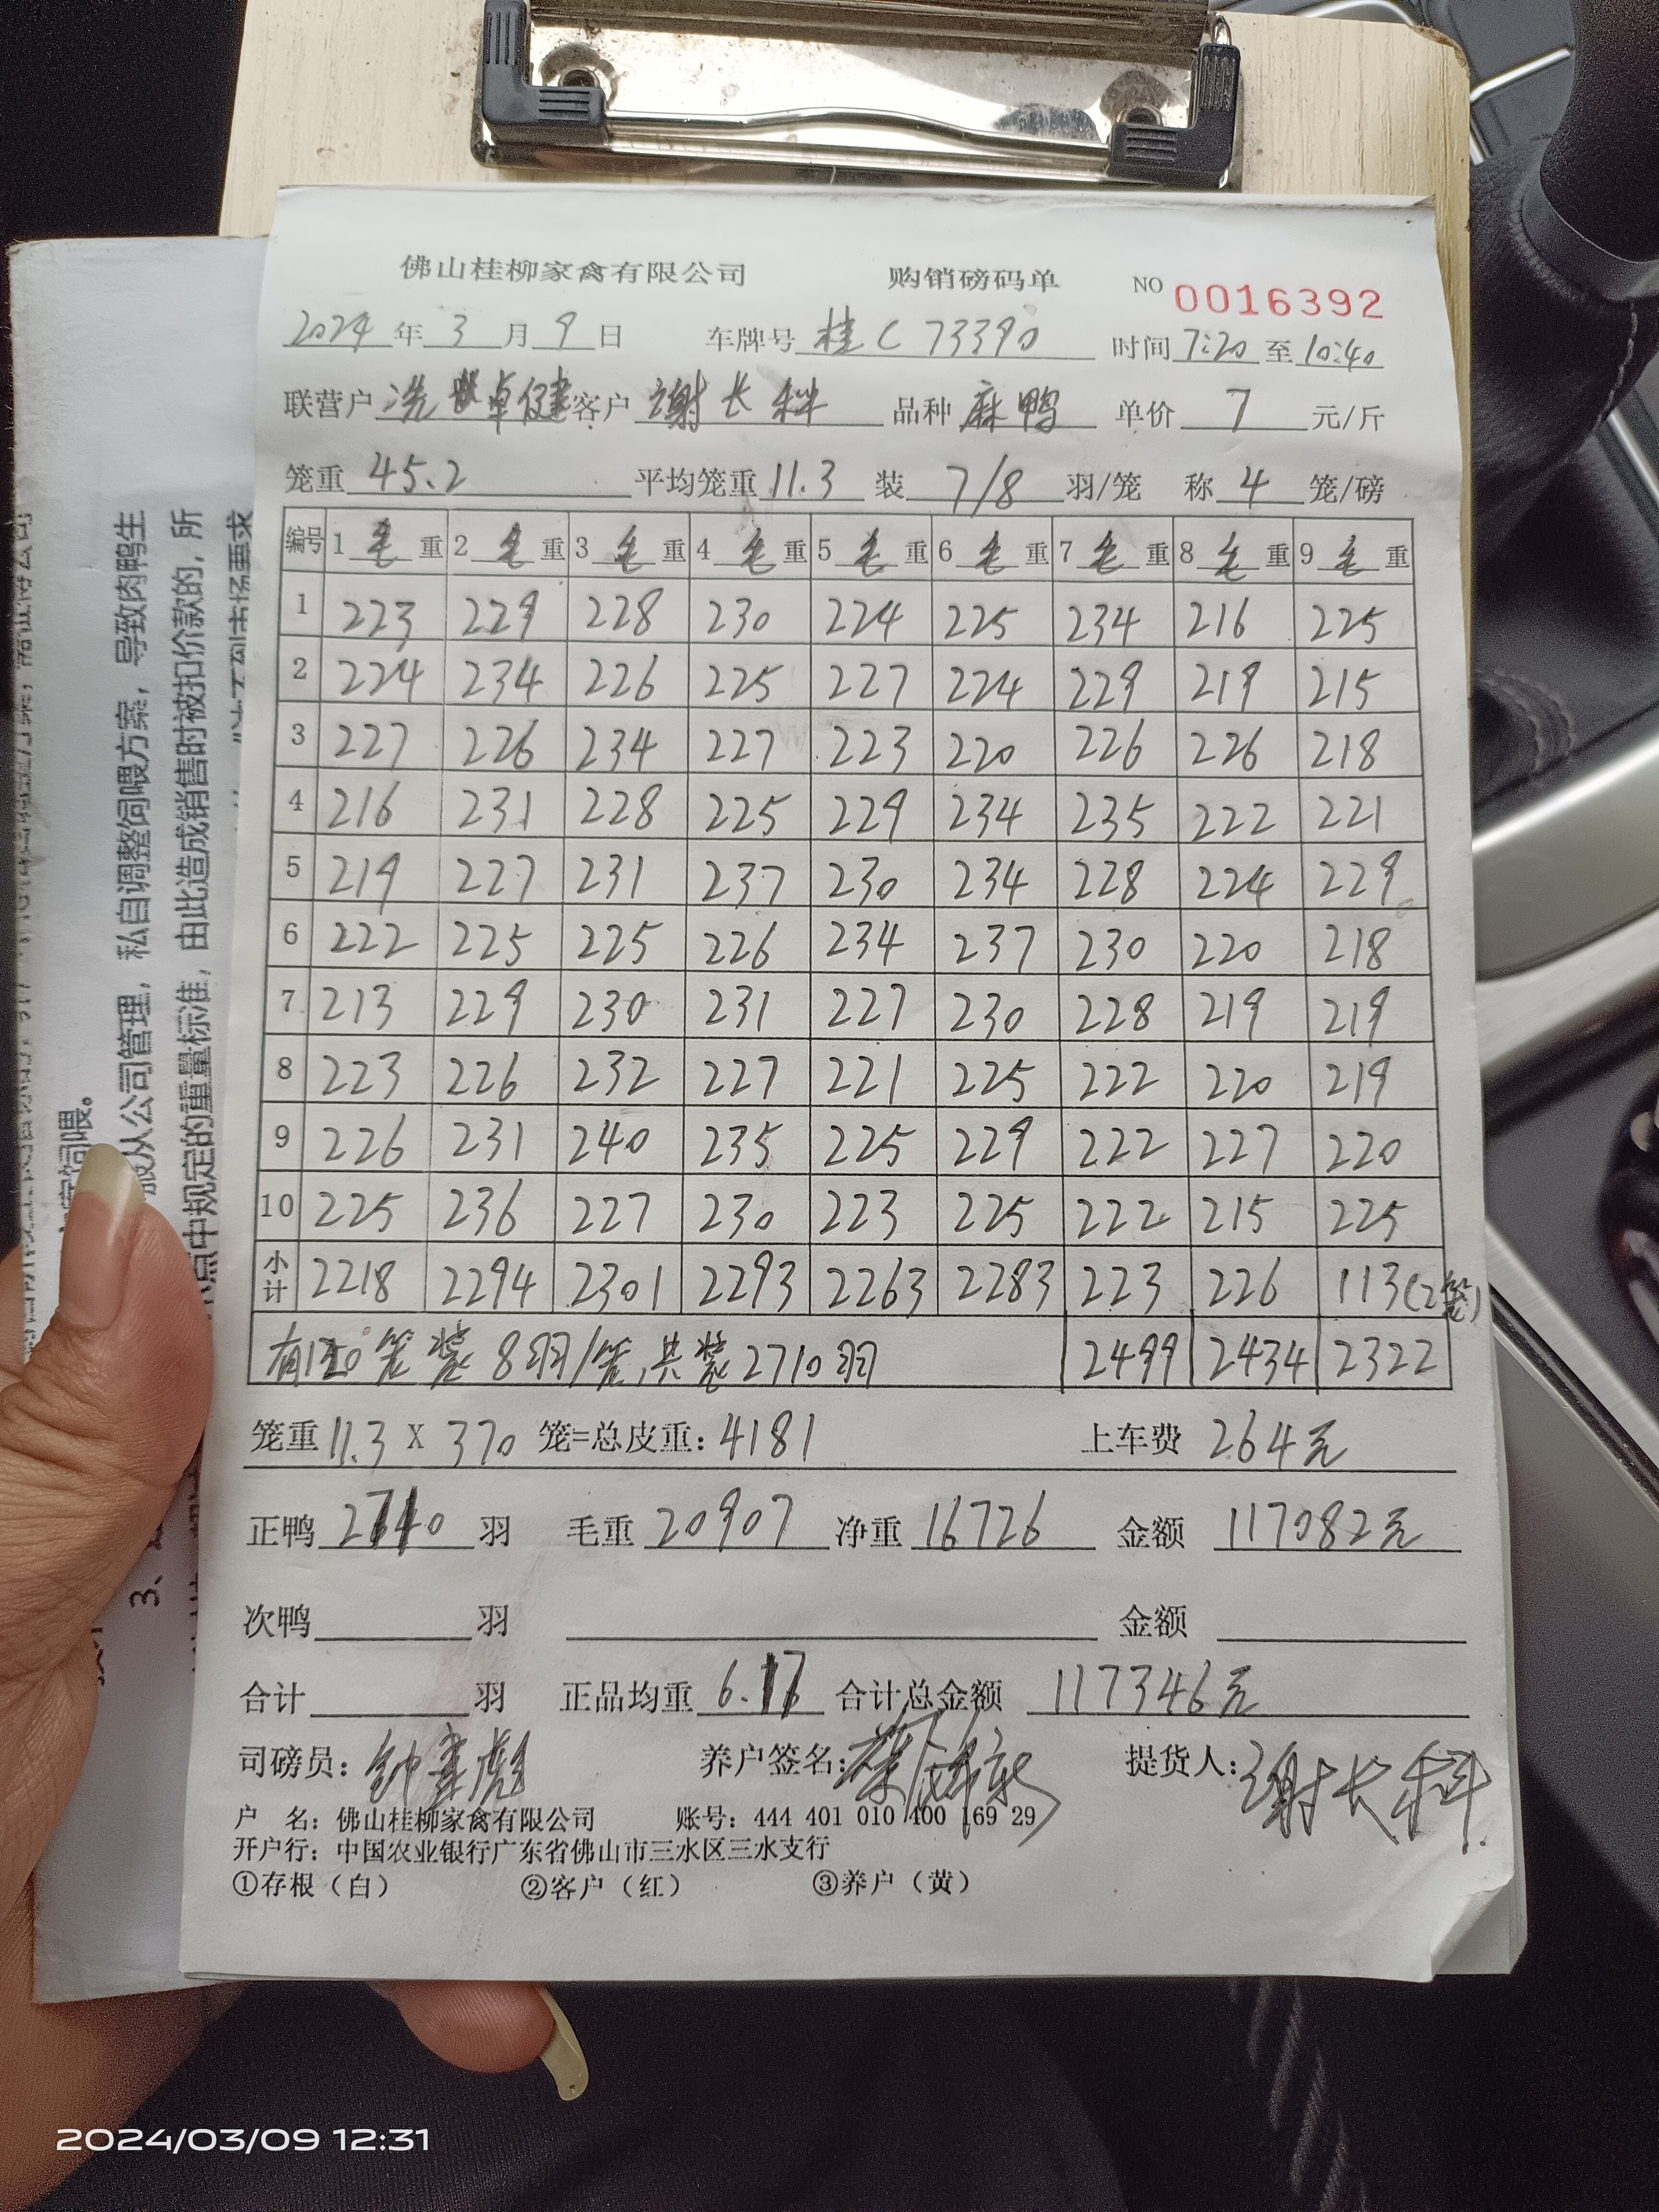 佛山桂柳家禽有限公司 购销磅码单 NO 0016392
2024年 3月 9日 车牌号 桂C73390 时间 7:20 至 10:40
联营户 冼卓健 客户 谢长科 品种 麻鸭 单价 7 元/斤
笼重 45.2 平均笼重 11.3 装 7/8 羽/笼 称 4 笼/磅
编号 1 毛重 2 毛重 3 毛重 4 毛重 5 毛重 6 毛重 7 毛重 8 毛重 9 毛重
1 223 229 228 230 224 225 234 216 225
2 224 234 226 225 227 224 229 219 215
3 227 226 234 227 223 220 226 226 218
4 216 231 228 225 229 234 235 222 221
5 219 227 231 237 230 234 228 224 229
6 222 225 225 226 234 237 230 220 218
7 213 229 230 231 227 230 228 219 219
8 223 226 232 227 221 225 222 220 219
9 226 231 240 235 225 229 222 227 220
10 225 236 227 230 223 225 222 215 225
小计 2218 2294 2301 2293 2263 2283 223 226 113(2笼)
有120笼装8羽/笼,共装2710羽 2499 2434 2322
笼重 11.3 X 370 笼=总皮重: 4181 上车费 264元
正鸭 2710 羽 毛重 20907 净重 16726 金额 117082元
次鸭 羽 金额
合计 羽 正品均重 6.17 合计总金额 117346元
司磅员: 养户签名: 提货人: 谢长科
户 名: 佛山桂柳家禽有限公司 账号: 444 401 010 400 169 29
开户行: 中国农业银行广东省佛山市三水区三水支行
①存根(白) ②客户(红) ③养户(黄)
导致肉鸭生
服从公司管理,私自调整饲喂方案,
点中规定的重量标准,由此造成销售时被扣价款的,所
饲喂。
3、
2024/03/09 12:31